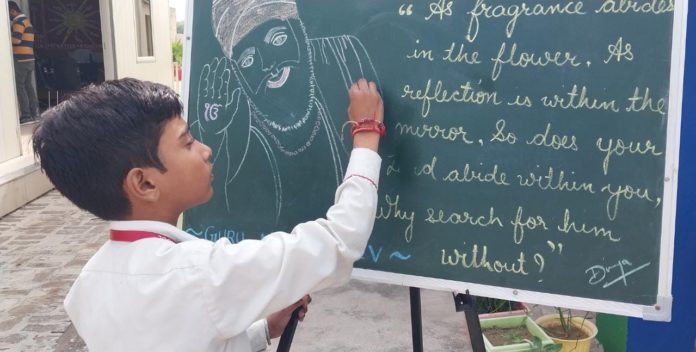 “As fragrance abides
in the flower. As
reflection is within the
mirror, So does your
abide within you,
Why search for him
without?”
Divya
ੴ
~GURU
V~